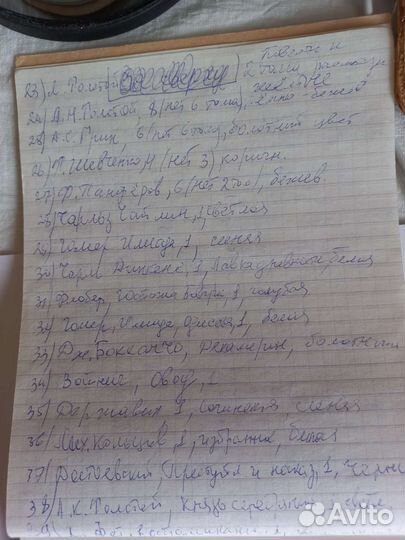 23) Л. Толстой Повести и
2 тома, рассказы
24) А.Н. Толстой, 8 (нет 6 тома),
25) А.С. Грин, 6 (нет 6 тома), болотный цвет
26) Т. Шевченко, 4 (нет 3), коричн.
27) Ф. Панфёров, 6 (нет 2 тома), бежев.
28) Чарльз Чаплин, светлая
29) Гомер Илиада, 1, синяя
30) Чарльз Диккенс, 1, Лавка древностей, белая
31) Флобер, Госпожа Бовари, 1, голубая
32) Гомер, Илиада, Одиссея, 1, белая
33) Дж. Боккаччо, Декамерон, болотный
34) Войнич, Овод, 1
35) Державин, 1, сочинения, синяя
36) Мих. Кольцов, 1, избранное, белая
37) Достоевский, Преступл и наказ, 1, черн
38) А.К. Толстой, Князь серебряный,
Avito